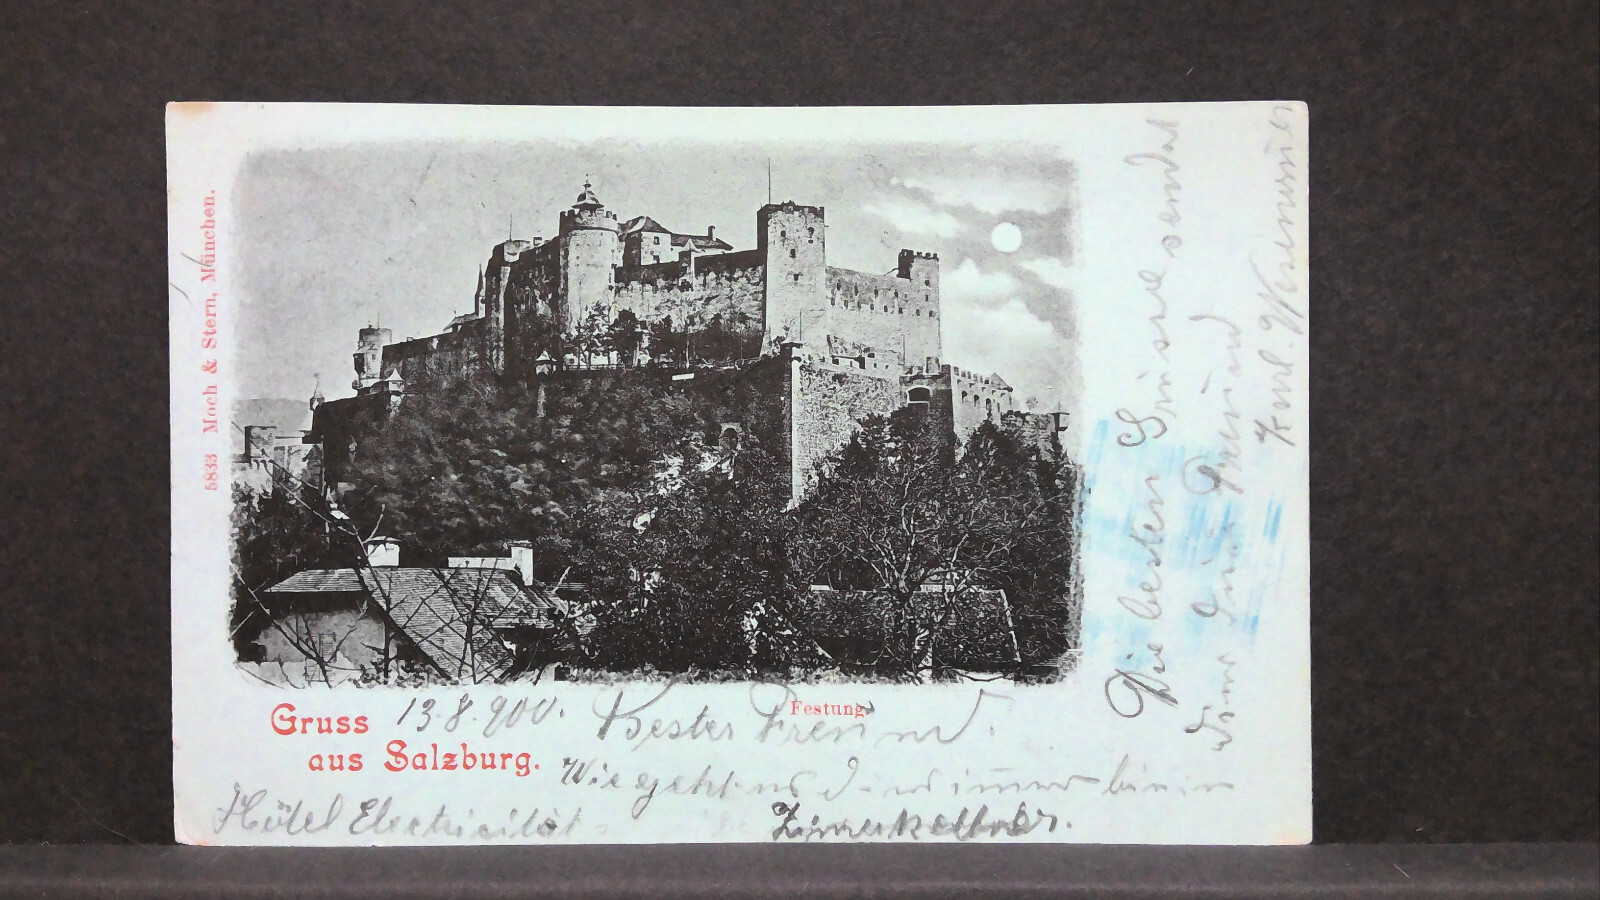 5833 Moch & Stern, München.
Gruss 13.8.900. Bester Freund.
Festung
aus Salzburg.
Wie geht es Dir immer bin in
Hôtel Electricität
Die besten Grüsse sendet
Dein Freund
Karl